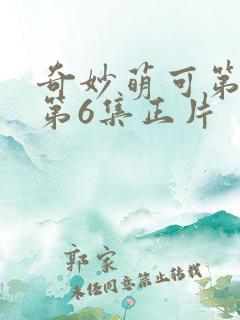 奇妙萌可第
第6集正片
郭家
未经同意禁止转载